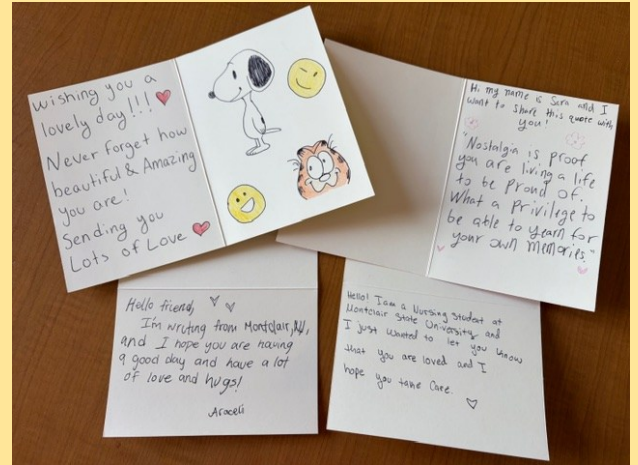 wishing you a
lovely day!!!
Never forget how
beautiful & Amazing
you are!
Sending you
Lots of Love
Hi my name is Sara and I
want to share this quote with
you!
"Nostalgia is proof
you are living a life
to be proud of.
What a privilege to
be able to yearn for
your own memories."
Hello friend,
I'm writing from Montclair, NJ,
and I hope you are having
a good day and have a lot
of love and hugs!
Araceli
Hello! I am a Nursing Student at
Montclair State University and
I just wanted to let you know
that you are loved and I
hope you take care.